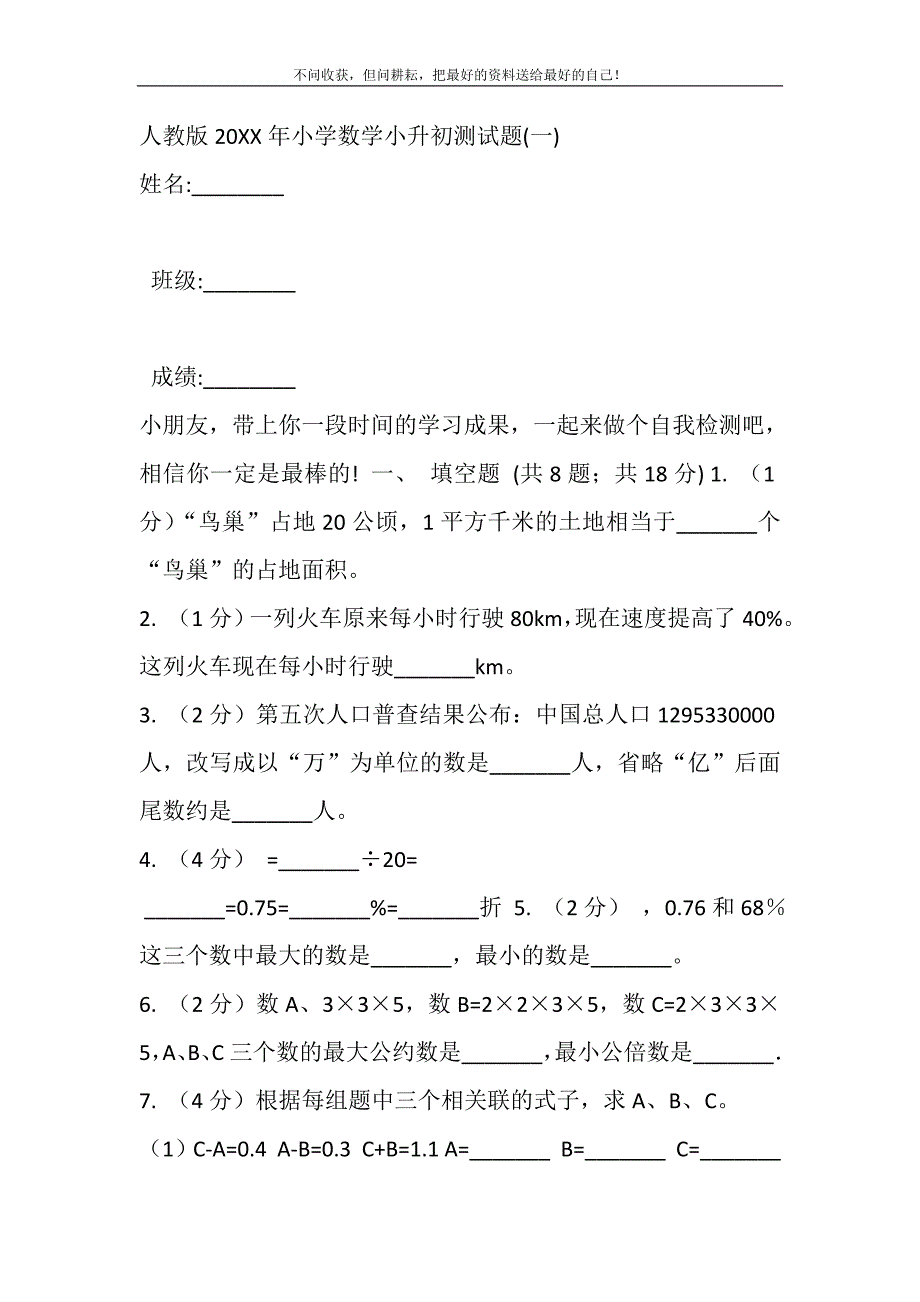 不问收获，但问耕耘，把最好的资料送给最好的自己！
人教版 20XX 年小学数学小升初测试题(一)
姓名:________
班级:________
成绩:________
小朋友，带上你一段时间的学习成果，一起来做个自我检测吧，
相信你一定是最棒的! 一、 填空题 (共 8 题；共 18 分) 1. （1
分）“鸟巢”占地 20 公顷，1 平方千米的土地相当于_______个
“鸟巢”的占地面积。
2. （1 分）一列火车原来每小时行驶 80km，现在速度提高了 40%。
这列火车现在每小时行驶_______km。
3. （2 分）第五次人口普查结果公布：中国总人口 1295330000
人，改写成以“万”为单位的数是_______人，省略“亿”后面
尾数约是_______人。
4. （4 分） =_______÷20=
_______=0.75=_______%=_______折 5. （2 分） ，0.76 和 68％
这三个数中最大的数是_______，最小的数是_______。
6. （2 分）数 A、3×3×5，数 B=2×2×3×5，数 C=2×3×3×
5，A、B、C 三个数的最大公约数是_______，最小公倍数是_______．
7. （4 分）根据每组题中三个相关联的式子，求 A、B、C。
（1）C-A=0.4 A-B=0.3 C+B=1.1 A=_______ B=_______ C=_______